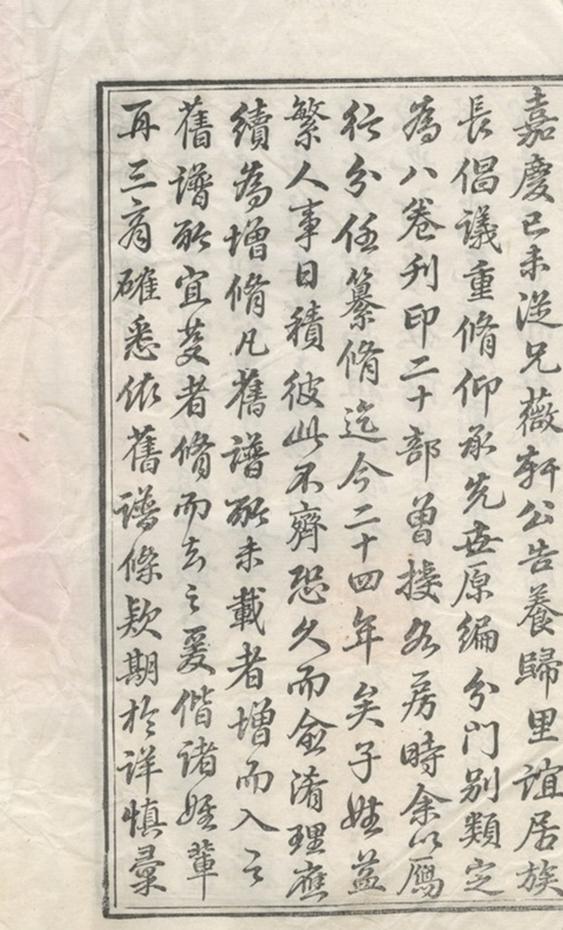 嘉慶己未從兄薇軒公告養歸里誼居族
長倡議重脩仰承先世原編分門別類定
為八卷刋印二十部曾授各房時余以鴈
行分任纂脩迄今二十四年矣子姓益
繁人事日積彼此不齊恐久而愈淆理應
續為增脩凡舊譜所未載者增而入之
舊譜所宜芟者脩而去之爰偕諸姪輩
再三商確悉依舊譜條欵期於詳慎彚